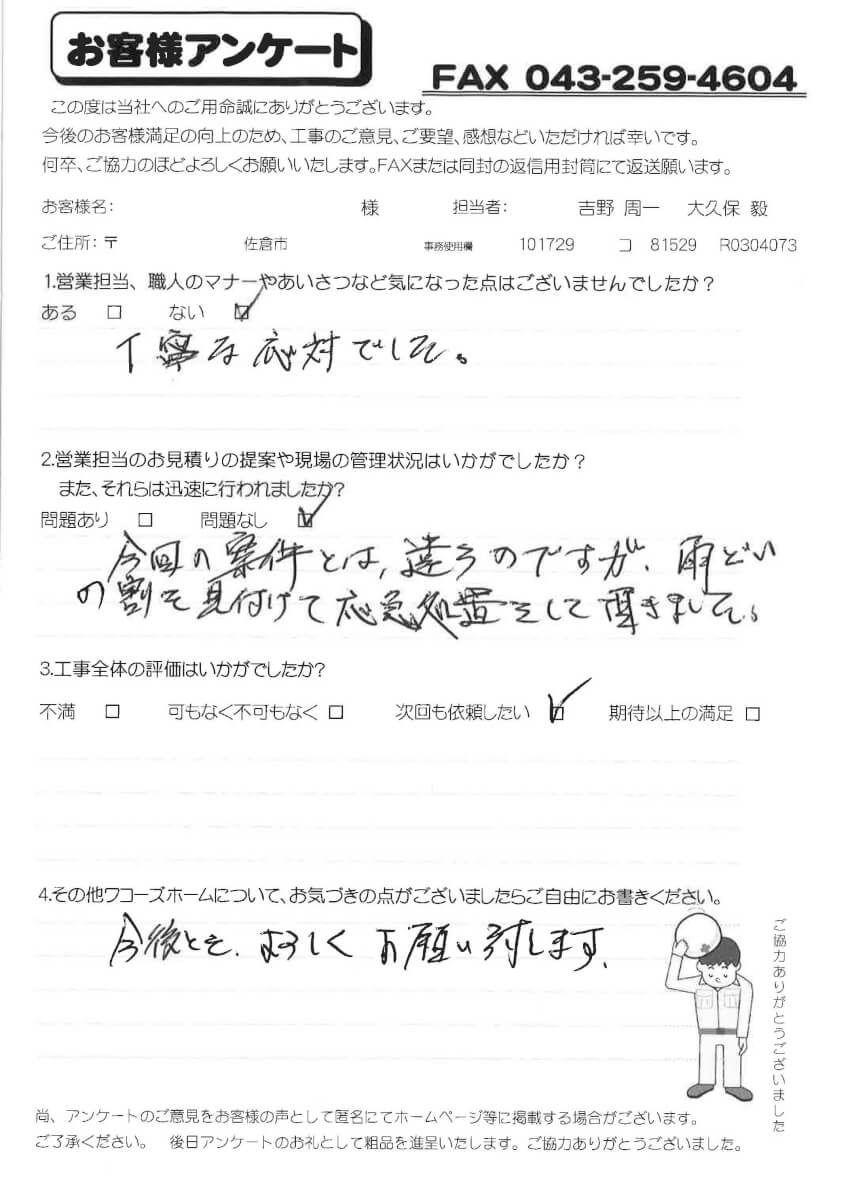 お客様アンケート
FAX 043-259-4604
この度は当社へのご用命誠にありがとうございます。
今後のお客様満足の向上のため、工事のご意見、ご要望、感想などいただければ幸いです。
何卒、ご協力のほどよろしくお願いいたします。FAXまたは同封の返信用封筒にて返送願います。
お客様名: 様 担当者: 吉野 周一 大久保 毅
ご住所:〒 佐倉市 事務使用欄 101729 コ 81529 R0304073
1.営業担当、職人のマナーやあいさつなど気になった点はございませんでしたか?
ある □ ない ☑
丁寧な応対でした。
2.営業担当のお見積りの提案や現場の管理状況はいかがでしたか?
また、それらは迅速に行われましたか?
問題あり □ 問題なし ☑
今回の案件とは、違うのですが、雨どい
の割を見付けて応急処置をして頂きました。
3.工事全体の評価はいかがでしたか?
不満 □ 可もなく不可もなく □ 次回も依頼したい ☑ 期待以上の満足 □
4.その他ワコーズホームについて、お気づきの点がございましたらご自由にお書きください。
今後とも、よろしくお願い致します。
ご協力ありがとうございました
尚、アンケートのご意見をお客様の声として匿名にてホームページ等に掲載する場合がございます。
ご了承ください。 後日アンケートのお礼として粗品を進呈いたします。ご協力ありがとうございました。